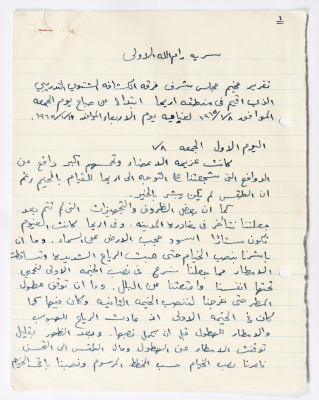 ١
سريه رام الله الاولى
تقرير مخيم مجلس مشرفي فرقه الكشافه الشتوي التدريبي
الذي اقيم في منطقه اريحا ابتداءً من صباح يوم الجمعه
الموافق ١٩٦٥/١/٨ لغاية يوم الاربعاء الموافق
اليوم الاول الجمعه ١/٨
كانت عزيمة الاعضاء وتحمسهم اكبر دافع من
الدوافع التي شجعتنا على التوجه الى اريحا للقيام بالمخيم رغم
ان الطقس لم يكن يبشر بالخير.
كما ان بعض الظروف والتجهيزات التي لم تتم بعد
جعلتنا نتأخر في مغادرة المدينه. وفي اريحا كانت الغيوم
تكون ستارًا اسود يحجب الارض عن السماء. وما ان
باشرنا بنصب الخيام حتى هبت الرياح الشديدة وتساقطت
الامطار مما جعلنا نسرع في نصب الخيمه الاولى لنحمي
تحتها انفسنا وامتعتنا من البلل. وما ان توقف هطول
المطر حتى خرجنا لننصب الخيمه الثانيه وكان فيها كما
كان في الخيمه الاولى اذ عادت الرياح للهبوب
والامطار للهطول قبل ان نكمل نصبها. وبعد الظهر بقليل
توقفت الامطار عن الهطول ومال الطقس الى التحسن
تابعنا نصب الخيام حسب الخطط المرسوم ونصبنا باقي الخيام